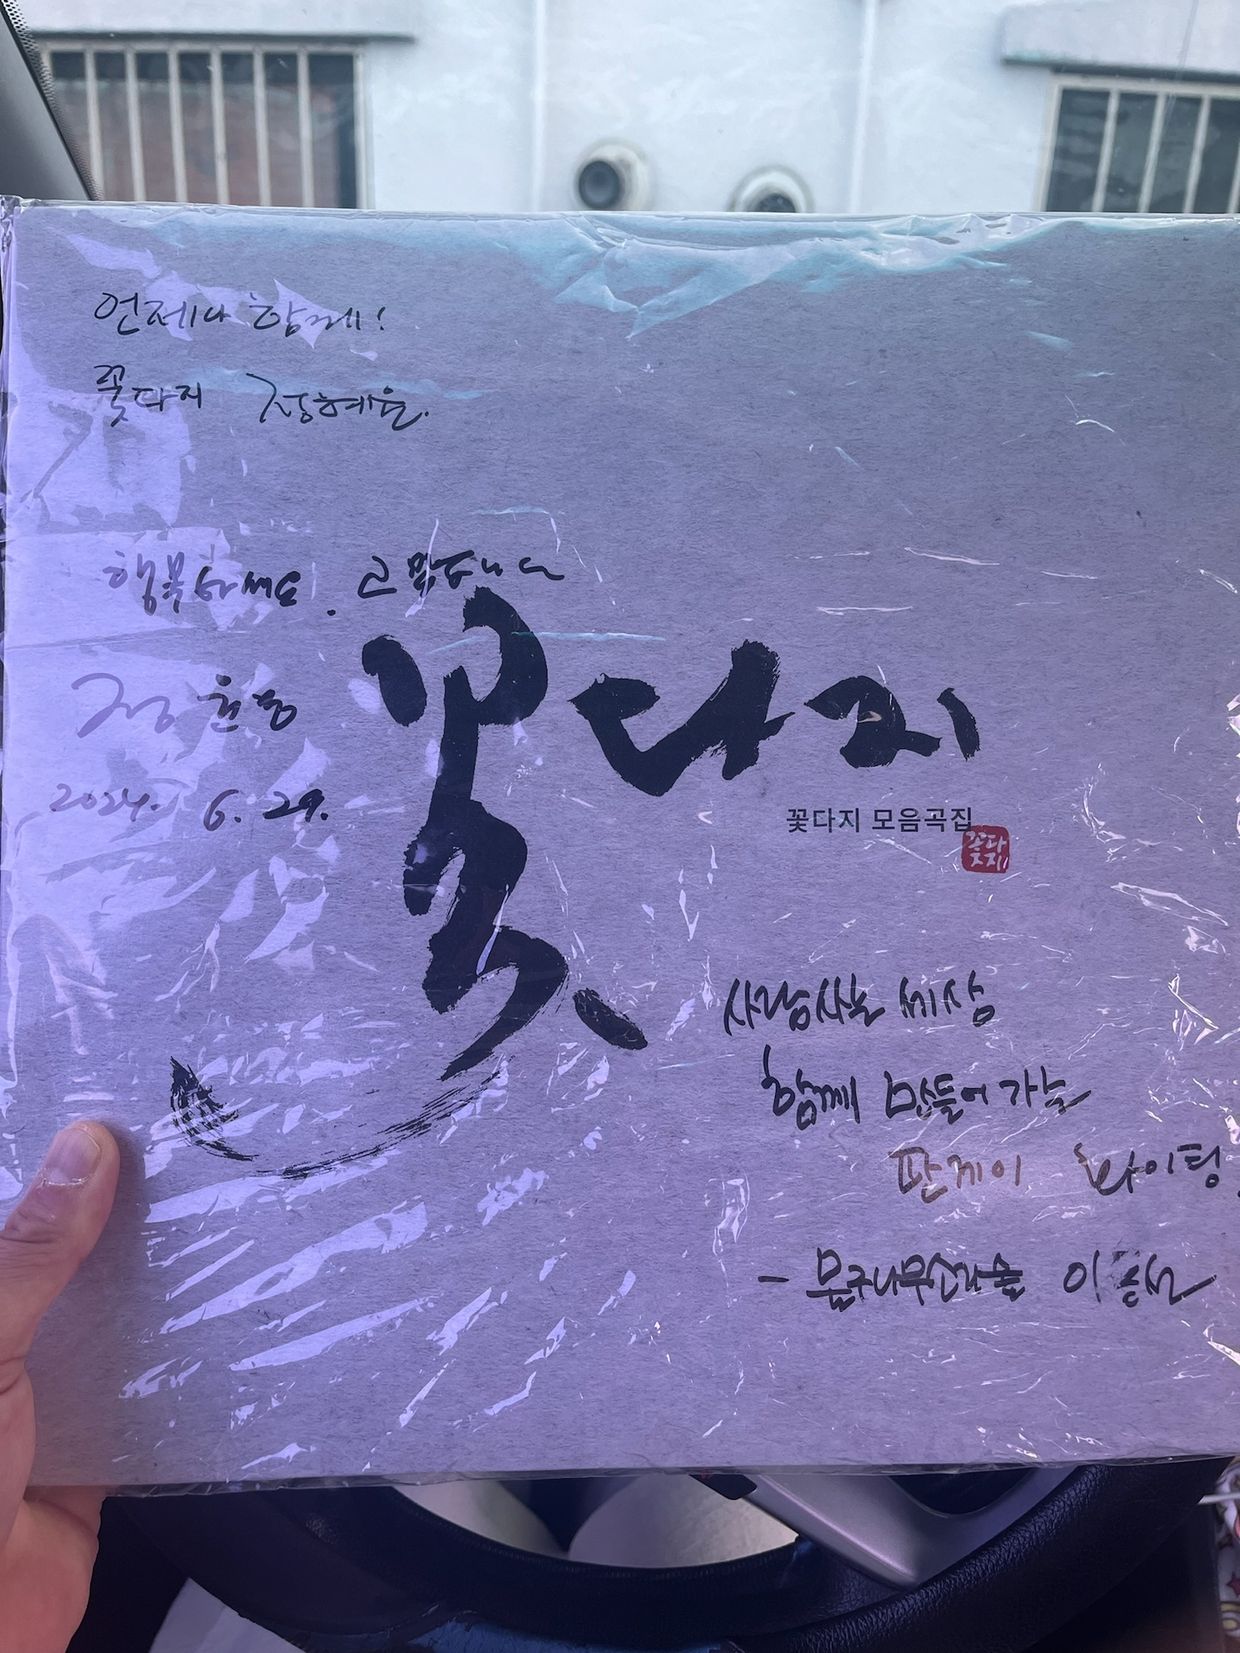 언제나 함께!
꽃다지 정혜윤.
행복하세요. 고맙습니다
정윤경
2024. 6. 29.
꽃다지
꽃다지 모음곡집
꽃다지
사람사는 세상
함께 만들어 가는
판게이 화이팅
이